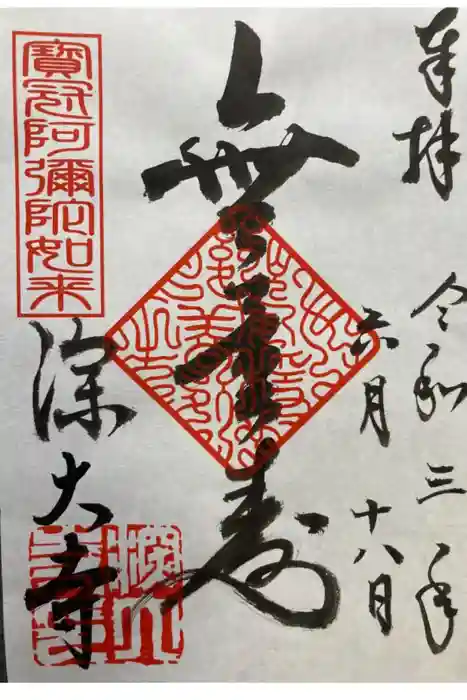 奉拝
令和三年
六月
十八日
無量寿
寶冠阿彌陀如来
深大寺
深大寺